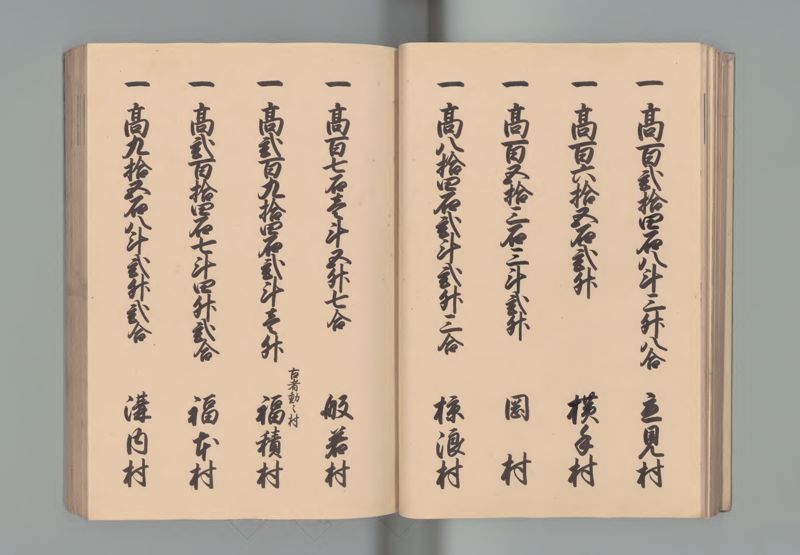 一 高百弐拾四石八斗三升八合 立見村
一 高百六拾五石弐升 横手村
一 高百五拾三石三斗弐升 岡村
一 高八拾四石弐斗弐升三合 椋波村
一 高百七石壱斗五升七合 般若村
一 高弐百九拾四石弐斗壱升 福積村
古者動々村
一 高弐百拾四石七斗四升弐合 福本村
一 高九拾五石八斗弐升弐合 溝内村